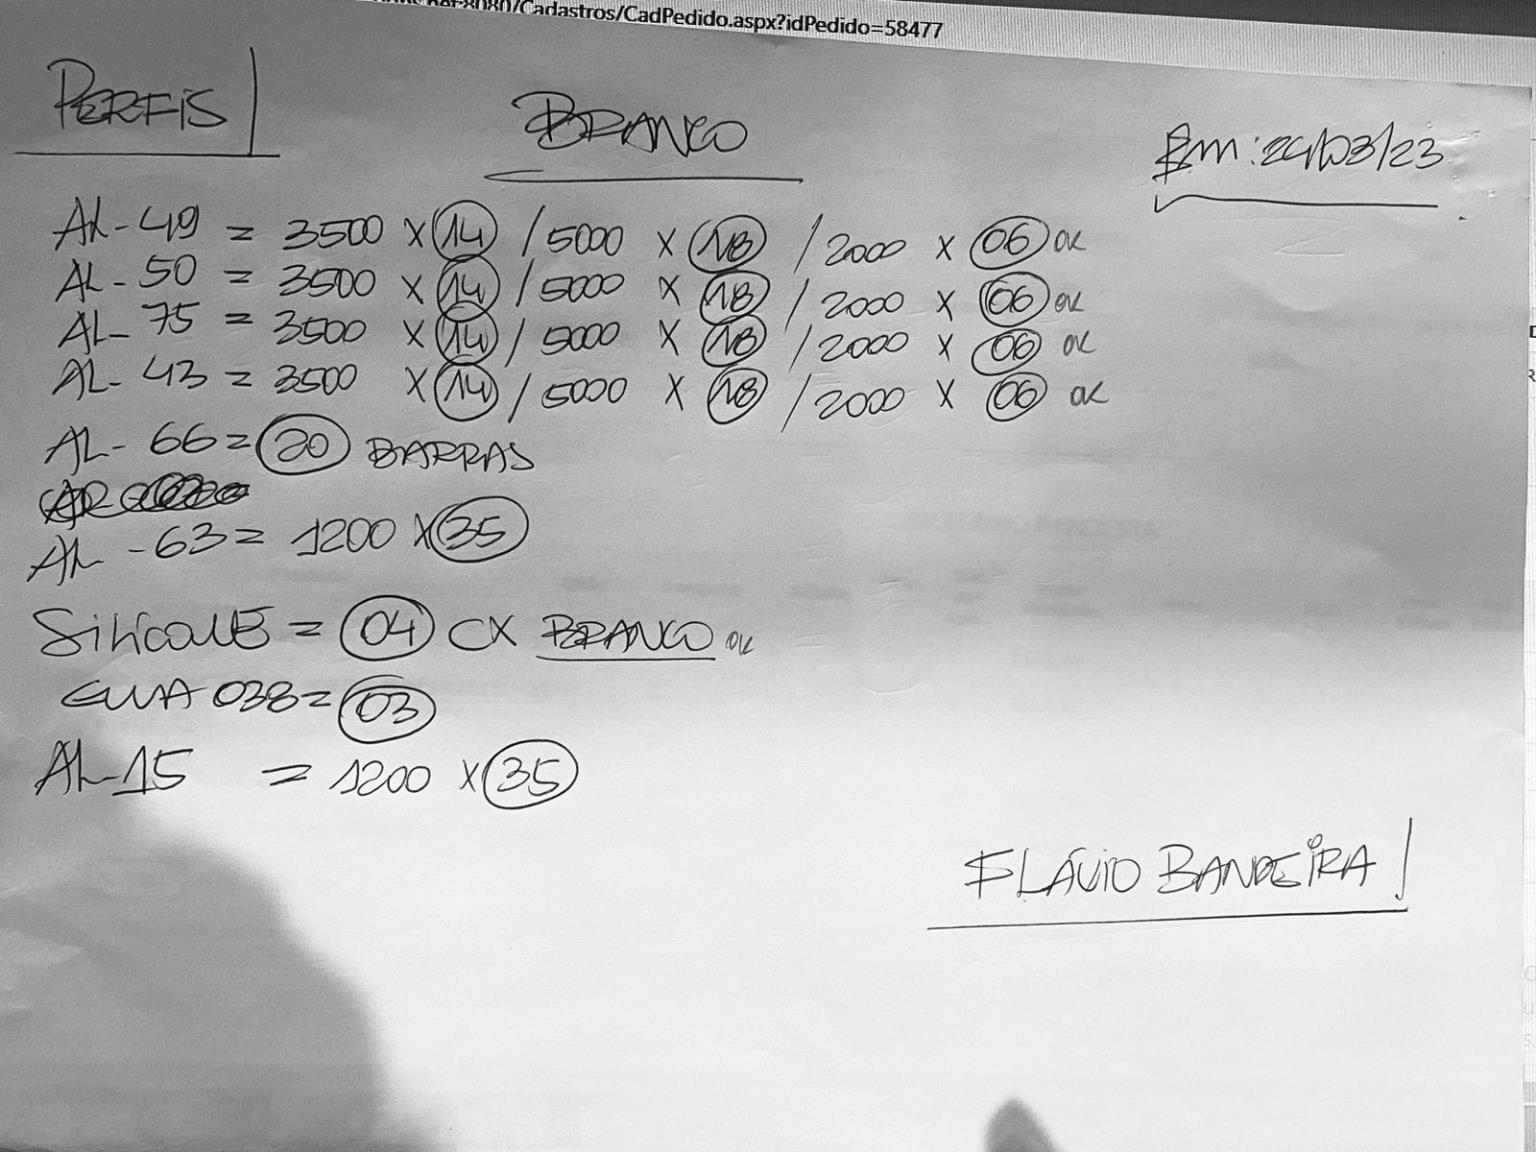 /Cadastros/CadPedido.aspx?idPedido=58477
PERFIS
BRANCO
Em: 24/03/23
AL-49 = 3500 x 14 / 5000 x 18 / 2000 x 06 ok
AL-50 = 3500 x 14 / 5000 x 18 / 2000 x 06 ok
AL-75 = 3500 x 14 / 5000 x 18 / 2000 x 06 ok
AL-43 = 3500 x 14 / 5000 x 18 / 2000 x 06 ok
AL-66 = 20 BARRAS
AL-63 = 1200 x 35
SILICONE = 04 CX BRANCO ok
GUIA 038 = 03
AL-15 = 1200 x 35
FLÁVIO BANDEIRA